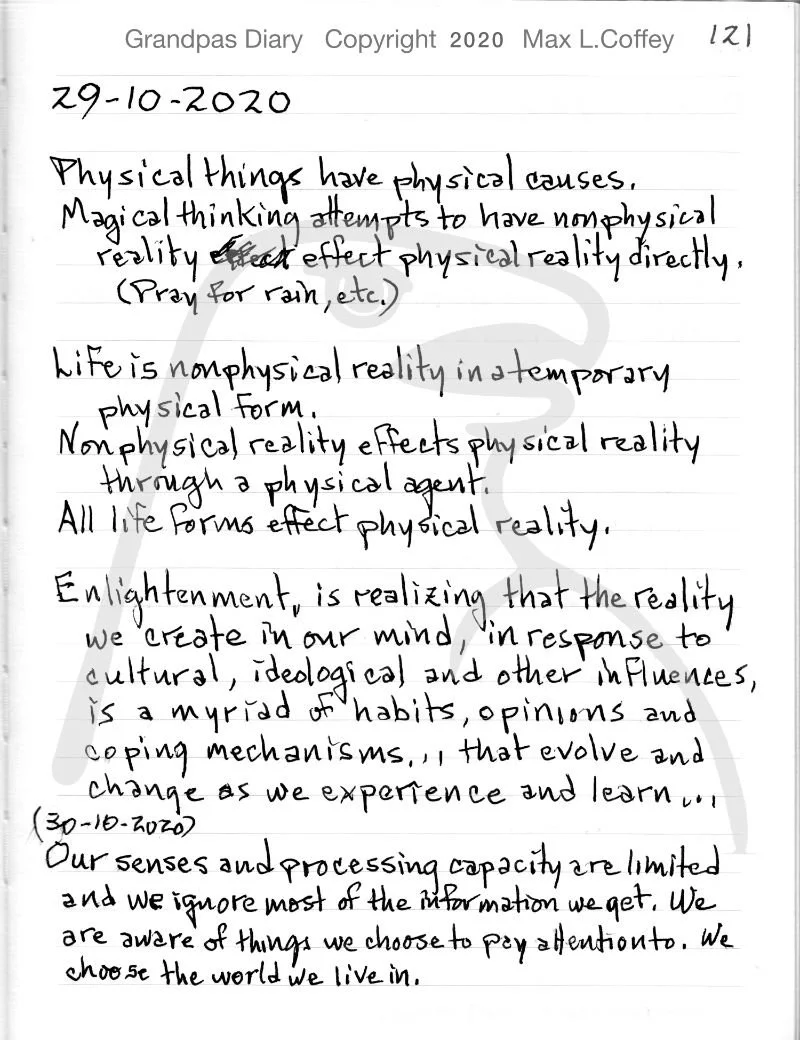 Grandpas Diary Copyright 2020 Max L.Coffey 121
29-10-2020
Physical things have physical causes.
Magical thinking attempts to have nonphysical
reality effect physical reality directly.
(Pray for rain, etc.)
Life is nonphysical reality in a temporary
physical form.
Nonphysical reality effects physical reality
through a physical agent.
All life forms effect physical reality.
Enlightenment, is realizing that the reality
we create in our mind, in response to
cultural, ideological and other influences,
is a myriad of habits, opinions and
coping mechanisms... that evolve and
change as we experience and learn...
(30-10-2020)
Our senses and processing capacity are limited
and we ignore most of the information we get. We
are aware of things we choose to pay attention to. We
choose the world we live in.